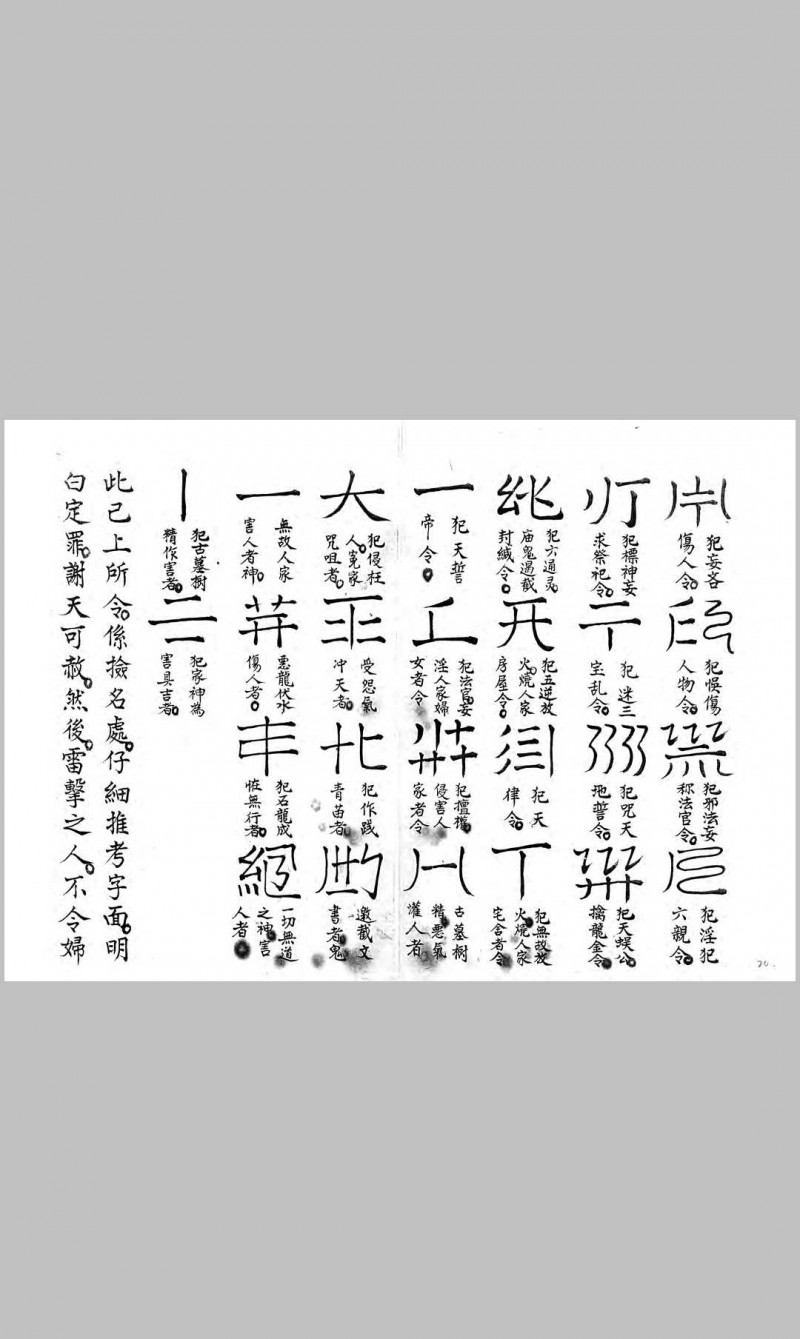 犯妄吝
傷人令
犯悮傷
人物令
犯邪法妄
称法官令
犯淫犯
六親令
犯標神妄
求祭祀令
犯迷三
宝乱令
犯咒天
地誓令
犯天蜈公
擒龍金令
犯六通灵
庙鬼遏截
封緘令
犯五逆放
火燒人家
房屋令
犯天
律令
犯無故放
火燒人家
宅舍者令
一
犯天誓
帝令
犯法官妄
淫人家婦
女者令
犯擅權
侵害人
家者令
古墓樹
精悪氣
人者
大
犯侵枉
人冤家
咒咀者
受怨氣
冲天者
犯作践
青苗者
邀截文
書者鬼
一
無故人家
害人者神
悪龍伏水
傷人者
犯石龍成
怪無行者
一切無道
之神害
人者
丨
犯古墓樹
精作害者
犯家神為
害具吉者
此已上所令係撿名處仔細推考字面明
白定罪謝天可赦然後雷擊之人不令婦
20.